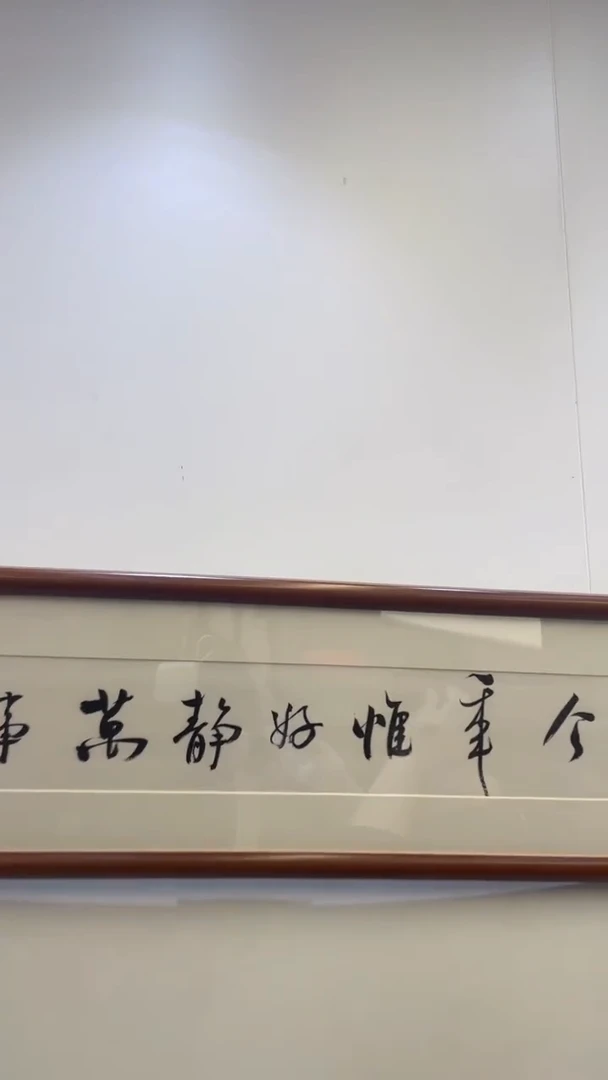 今年惟好静萬事